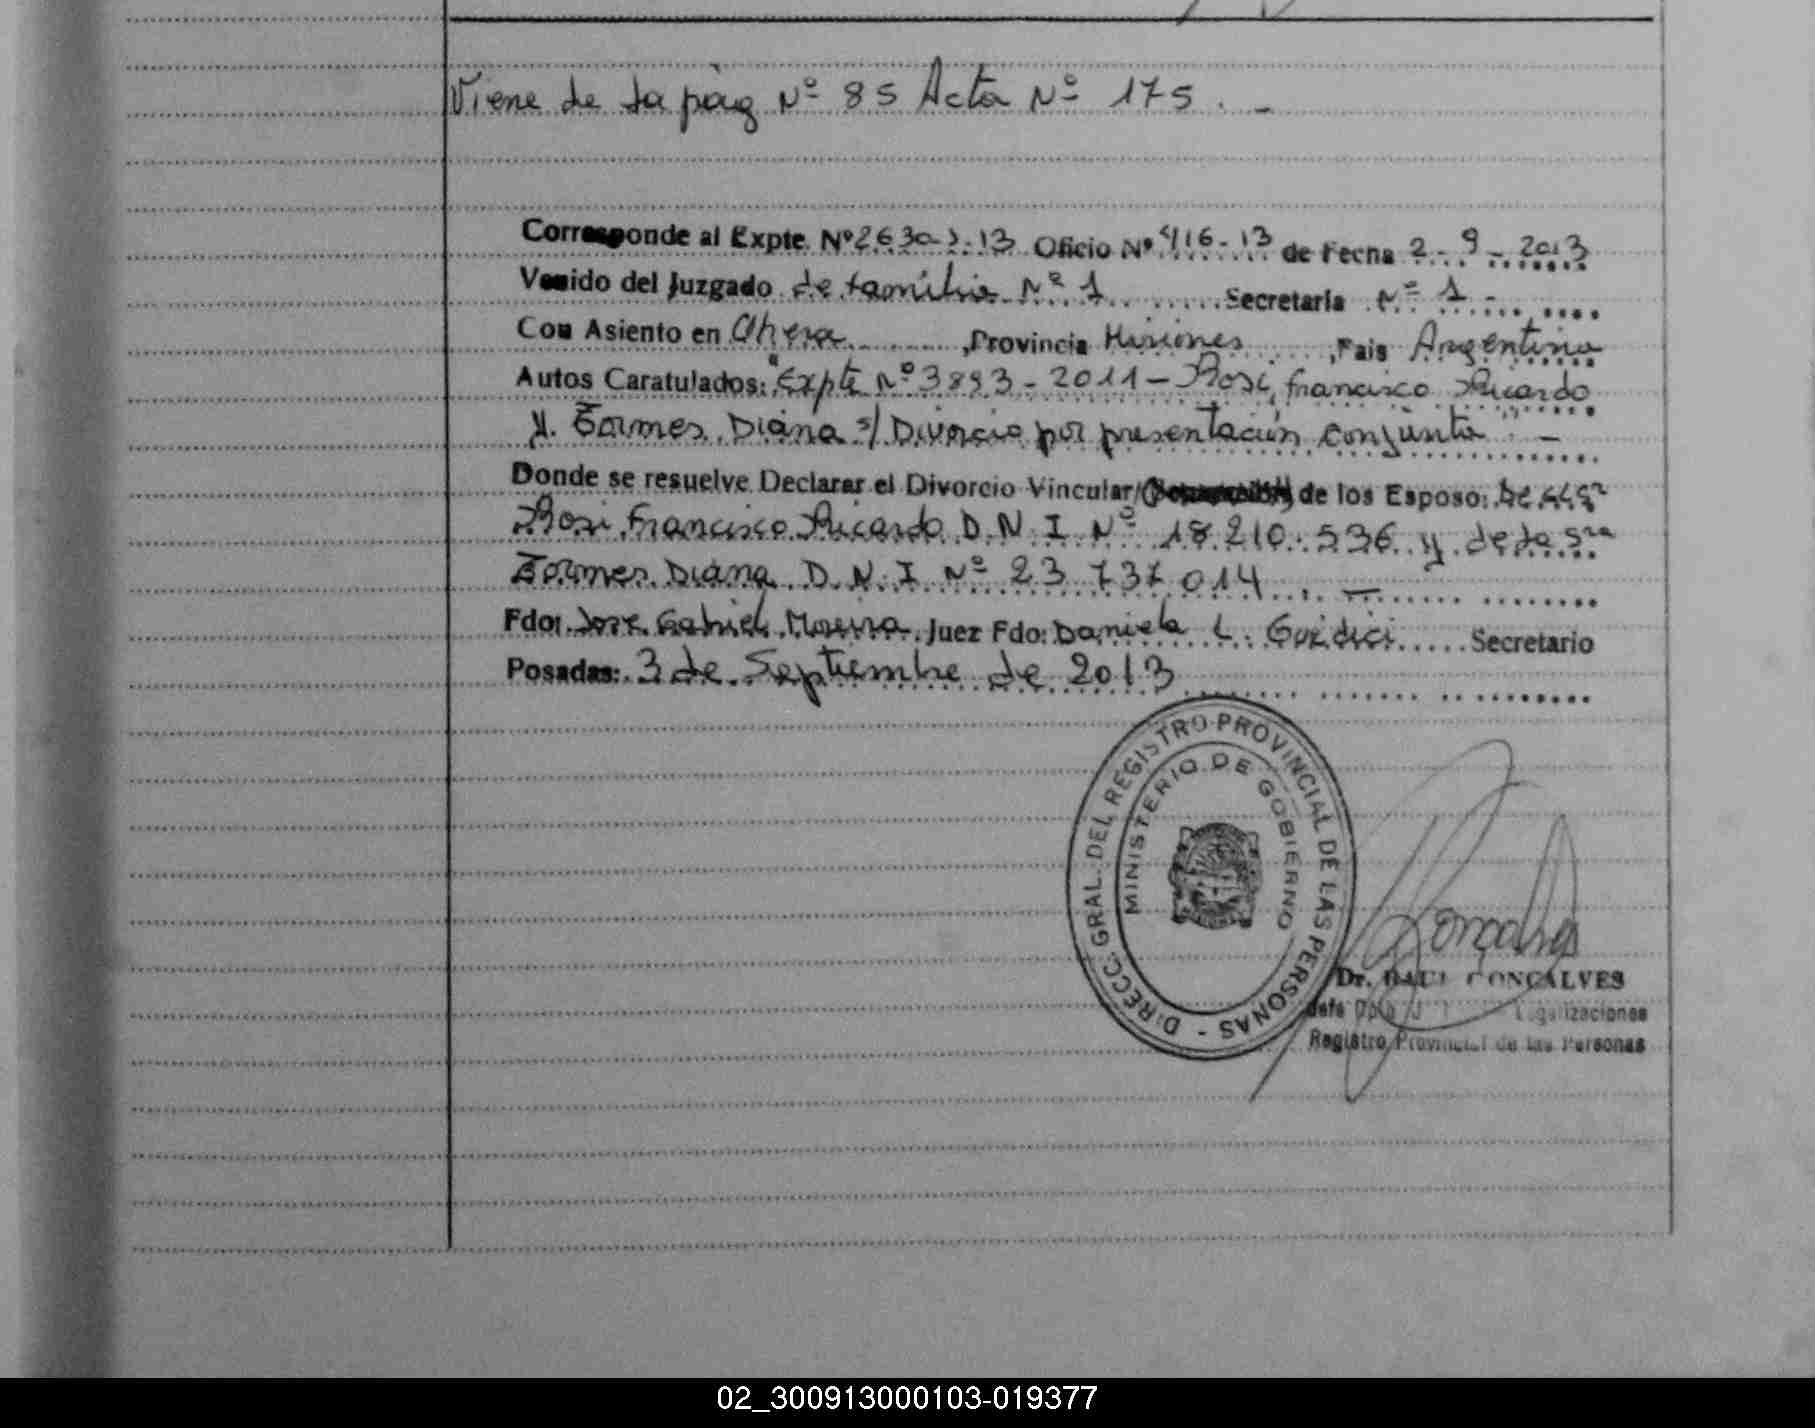 Viene de la pág Nº 85 Acta Nº 175. -
Corresponde al Expte. Nº 2630-J-13 Oficio Nº 416-13 de Fecha 2-9-2013
Venido del Juzgado de familia Nº 1 Secretaría Nº 1 -
Con Asiento en Obera, Provincia Misiones, País Argentina
Autos Caratulados: "Expte Nº 3893-2011- Rosi, Francisco Ricardo
y Tormes Diana s/ Divorcio por presentación conjunta" -
Donde se resuelve Declarar el Divorcio Vincular/ de los Esposo:
Rosi Francisco Ricardo D.N.I Nº 18.210.536 y de la Sra
Tormes Diana D.N.I Nº 23 737 014 . -
Fdo: Jose Gabriel Moreira. Juez Fdo: Daniela L. Guidici Secretario
Posadas: 3 de Septiembre de 2013
DIRECC. GRAL. DEL REGISTRO PROVINCIAL DE LAS PERSONAS -
MINISTERIO DE GOBIERNO
Dr. RAUL GONÇALVES
Jefe Dpto Legalizaciones
Registro Provincial de las Personas
02_300913000103-019377